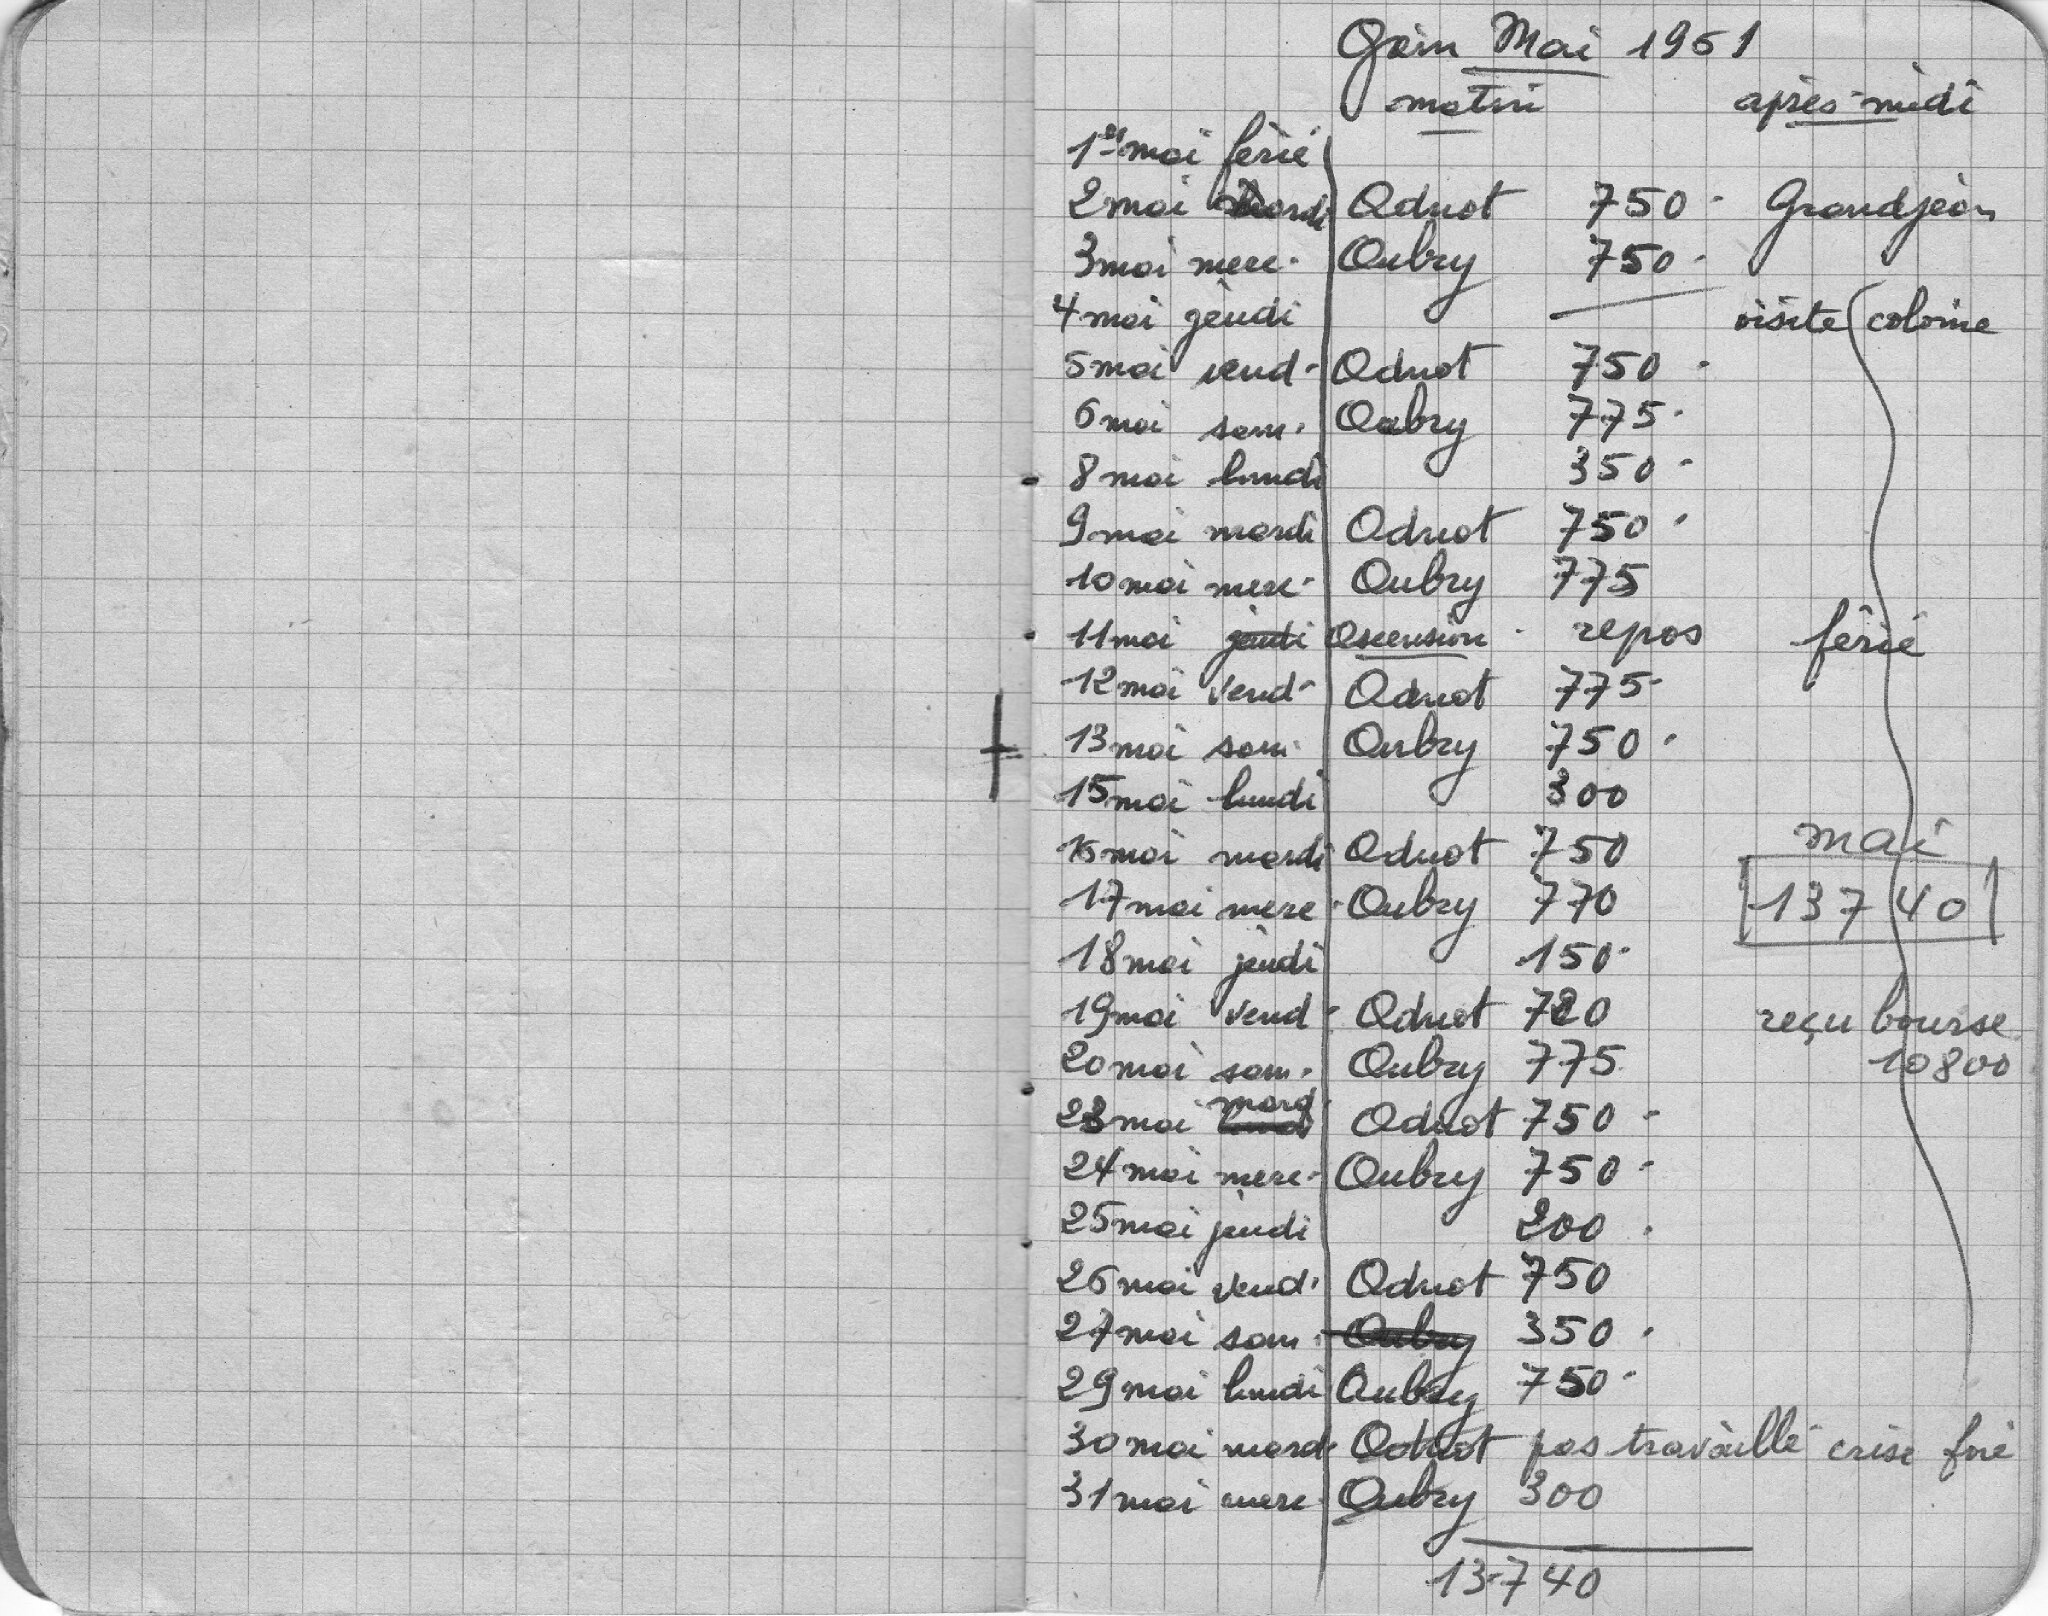 Gain Mai 1951
matin après-midi
1er mai férié
2 mai mardi Adnot 750 Grandjean
3 mai merc. Aubry 750
4 mai jeudi visite colonie
5 mai vend. Adnot 750
6 mai sam. Aubry 775
8 mai lundi 350
9 mai mardi Adnot 750
10 mai merc. Aubry 775
11 mai jeudi Ascension repos férié
12 mai vend. Adnot 775
13 mai sam. Aubry 750
15 mai lundi 300
16 mai mardi Adnot 750
mai
17 mai merc. Aubry 770 13740
18 mai jeudi 150
19 mai vend. Adnot 720 reçu bourse
20 mai sam. Aubry 775 10800
23 mai mard. Adnot 750
24 mai merc. Aubry 750
25 mai jeudi 200
26 mai vend. Adnot 750
27 mai sam. Aubry 350
29 mai lundi Aubry 750
30 mai mardi Adnot pas travaillé crise foie
31 mai merc. Aubry 300
13740